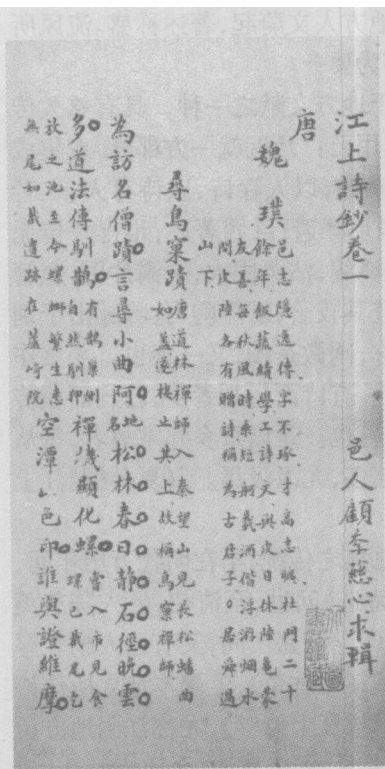 江上詩鈔卷一 邑人顧季慈心求輯
唐
魏璞
邑志隱逸傳字不琢才高志曠杜門二十
餘年飯蔬績學工詩文與皮日休陸龜蒙
友善每秋風時系短舸載酒偕浮游烟水
間皮陸各有贈詩稱為古君子。居舜過
山下
尋鳥窠蹟
唐道林禪師入秦望山見長松蟠曲
如蓋遂棲止其上故稱鳥窠禪師
為訪名僧蹟言尋小曲阿地名松林春日静石徑晚雲
多道法傳馴鵲有鵲巢側自然馴狎禪機顯化螺嘗入市見食螺已截尾乞
放之池至今螺螄繁生悉
無尾如截遺跡在蘆崎院
空潭山色印誰與證維摩